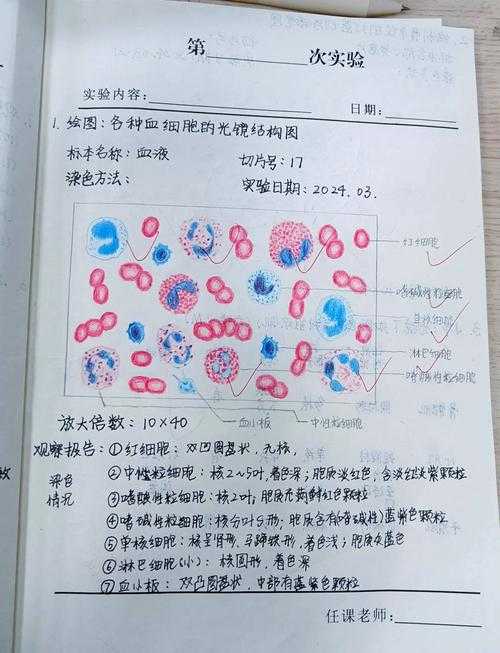 第______次实验
实验内容：
日期：
1. 绘图：各种血细胞的光镜结构图
标本名称：血液
切片号：17
染色方法：
实验日期：2024.03.
红细胞
嗜碱性粒细胞
单核细胞
淋巴细胞
嗜酸性粒细胞
中性粒细胞
血小板
放大倍数：10×40
观察报告：①红细胞：双凹圆盘状，无核，
②中性粒细胞：核2~5叶，着色深；胞质淡红色，含淡红淡紫颗粒
③嗜酸性粒细胞：核2叶；胞质充满鲜红色颗粒
④嗜碱性粒细胞：核分叶S形；胞质含有(嗜碱性)蓝紫色颗粒
⑤单核细胞：核呈肾形，马蹄铁形，着色浅；胞质灰蓝色
⑥淋巴细胞(小)：核圆形，着色深
⑦血小板：双凸圆盘状，中部有蓝紫色颗粒
情况
任课老师：